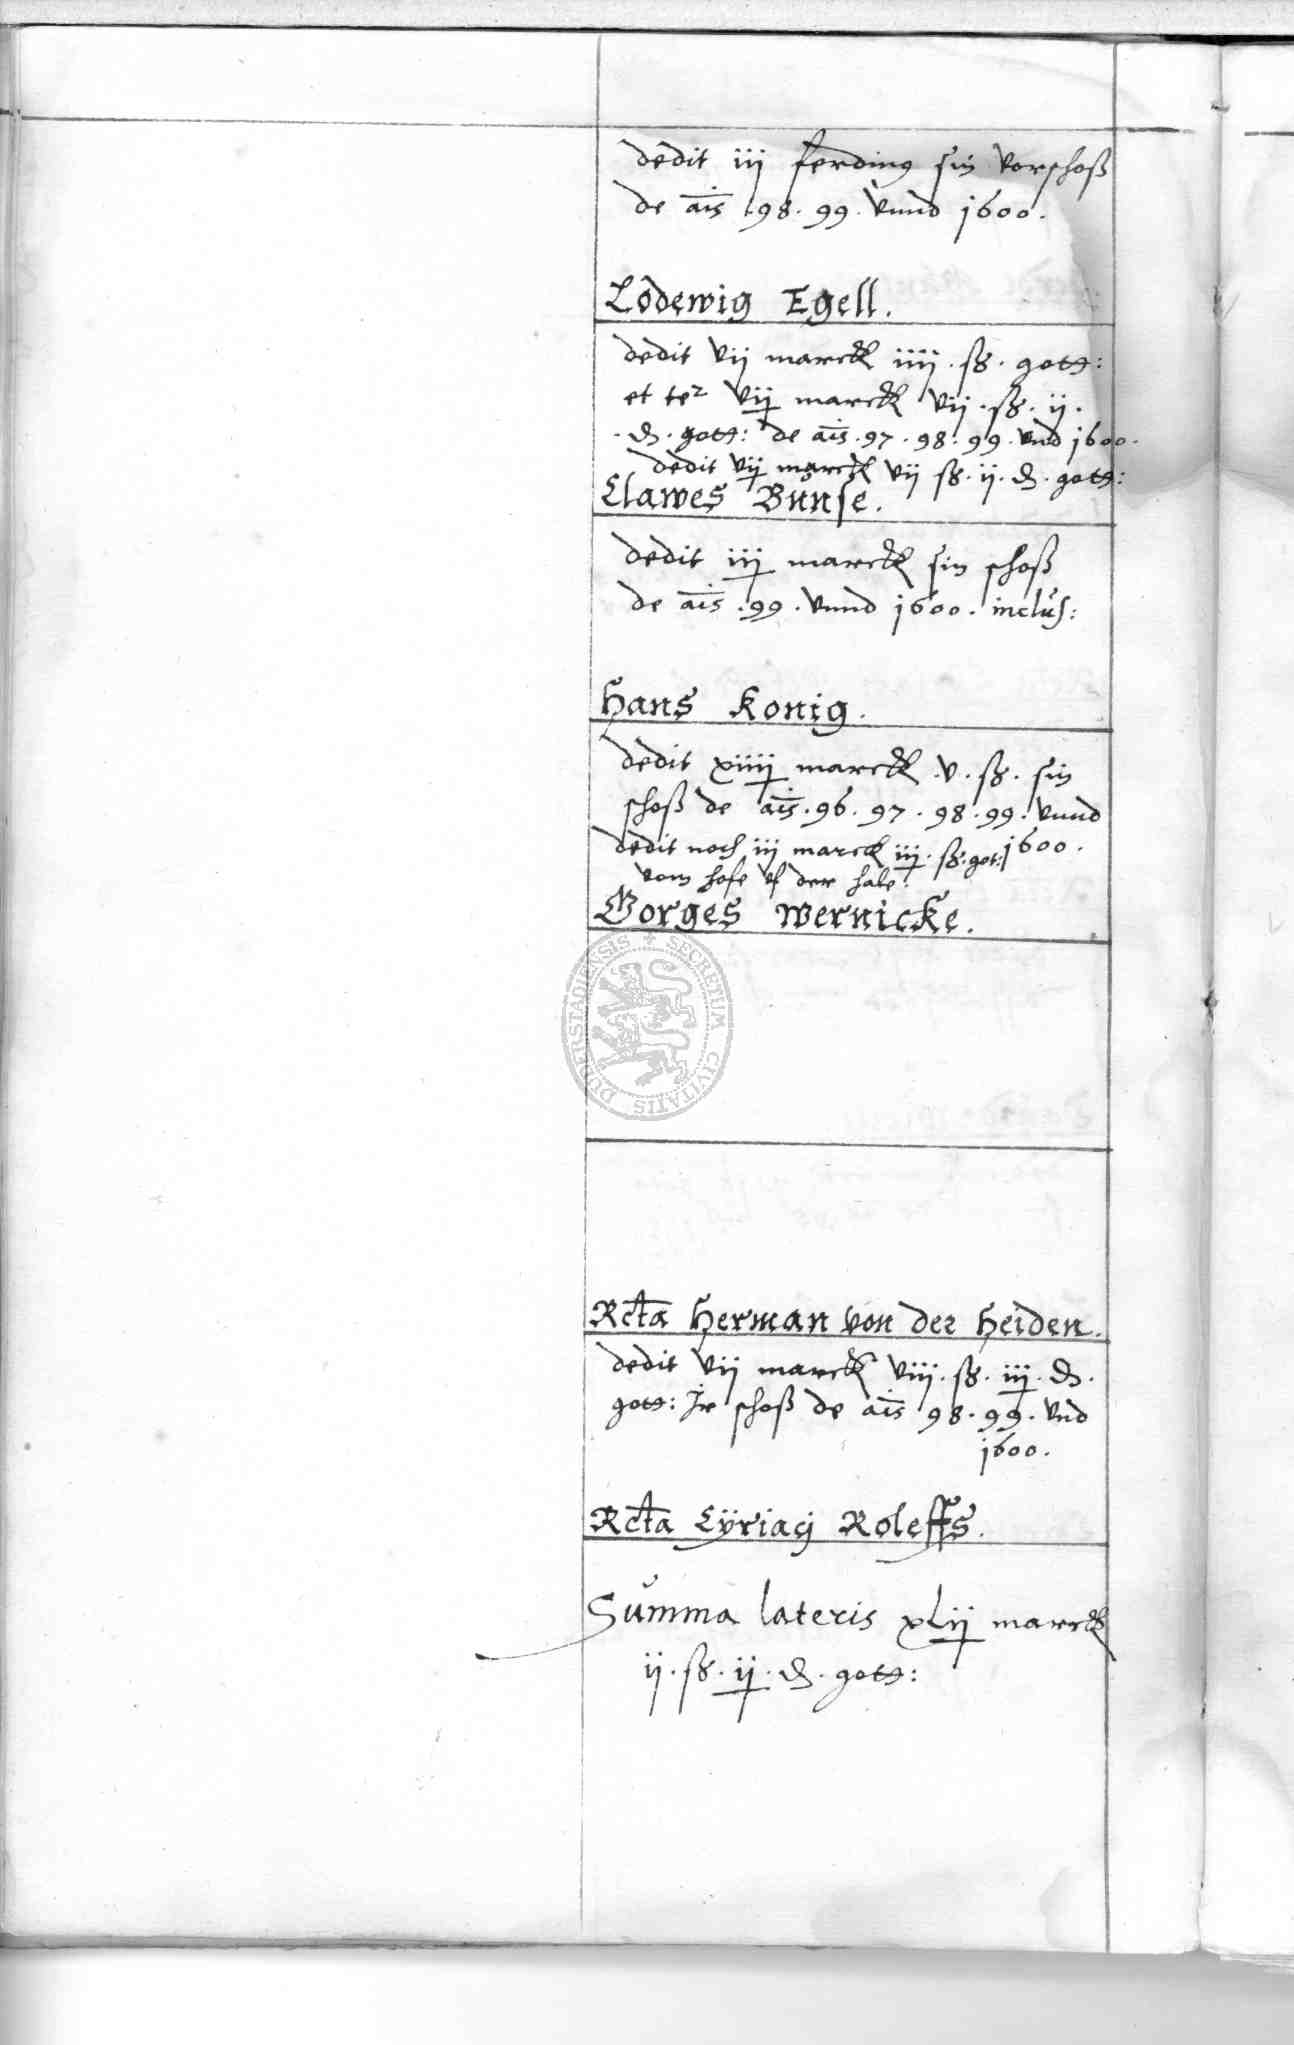 dedit iij ferding sin vorschoß
de ais 98. 99. vnnd 1600.
Lodewig Egell.
dedit vij marck iiij. ß. gott:
et ter vij marck vij. ß. ij.
. d. gott: de ais. 97. 98. 99. vnd 1600.
dedit vij marck vij ß. ij. d. gott:
Clawes Bunse.
dedit iij marck sin schoß
de ais. 99. vnnd 1600. inclus:
Hans Konig.
dedit xiiij marck .v. ß. sin
schoß de ais. 96. 97. 98. 99. vnnd
1600.
dedit noch iij marck iij. ß. got:
vom hofe vf der habe.
Gorges Wernicke.
DUDERSTADIENSIS + SECRETUM CIVITATIS
Rcta Herman von der Heiden.
dedit vij marck viij. ß. iij. d.
gott: Jr schoß de ais 98. 99. vnd
1600.
Rcta Cÿriacj Roleffs.
Summa lateris xLij marck
ij. ß. ij. d. gott: